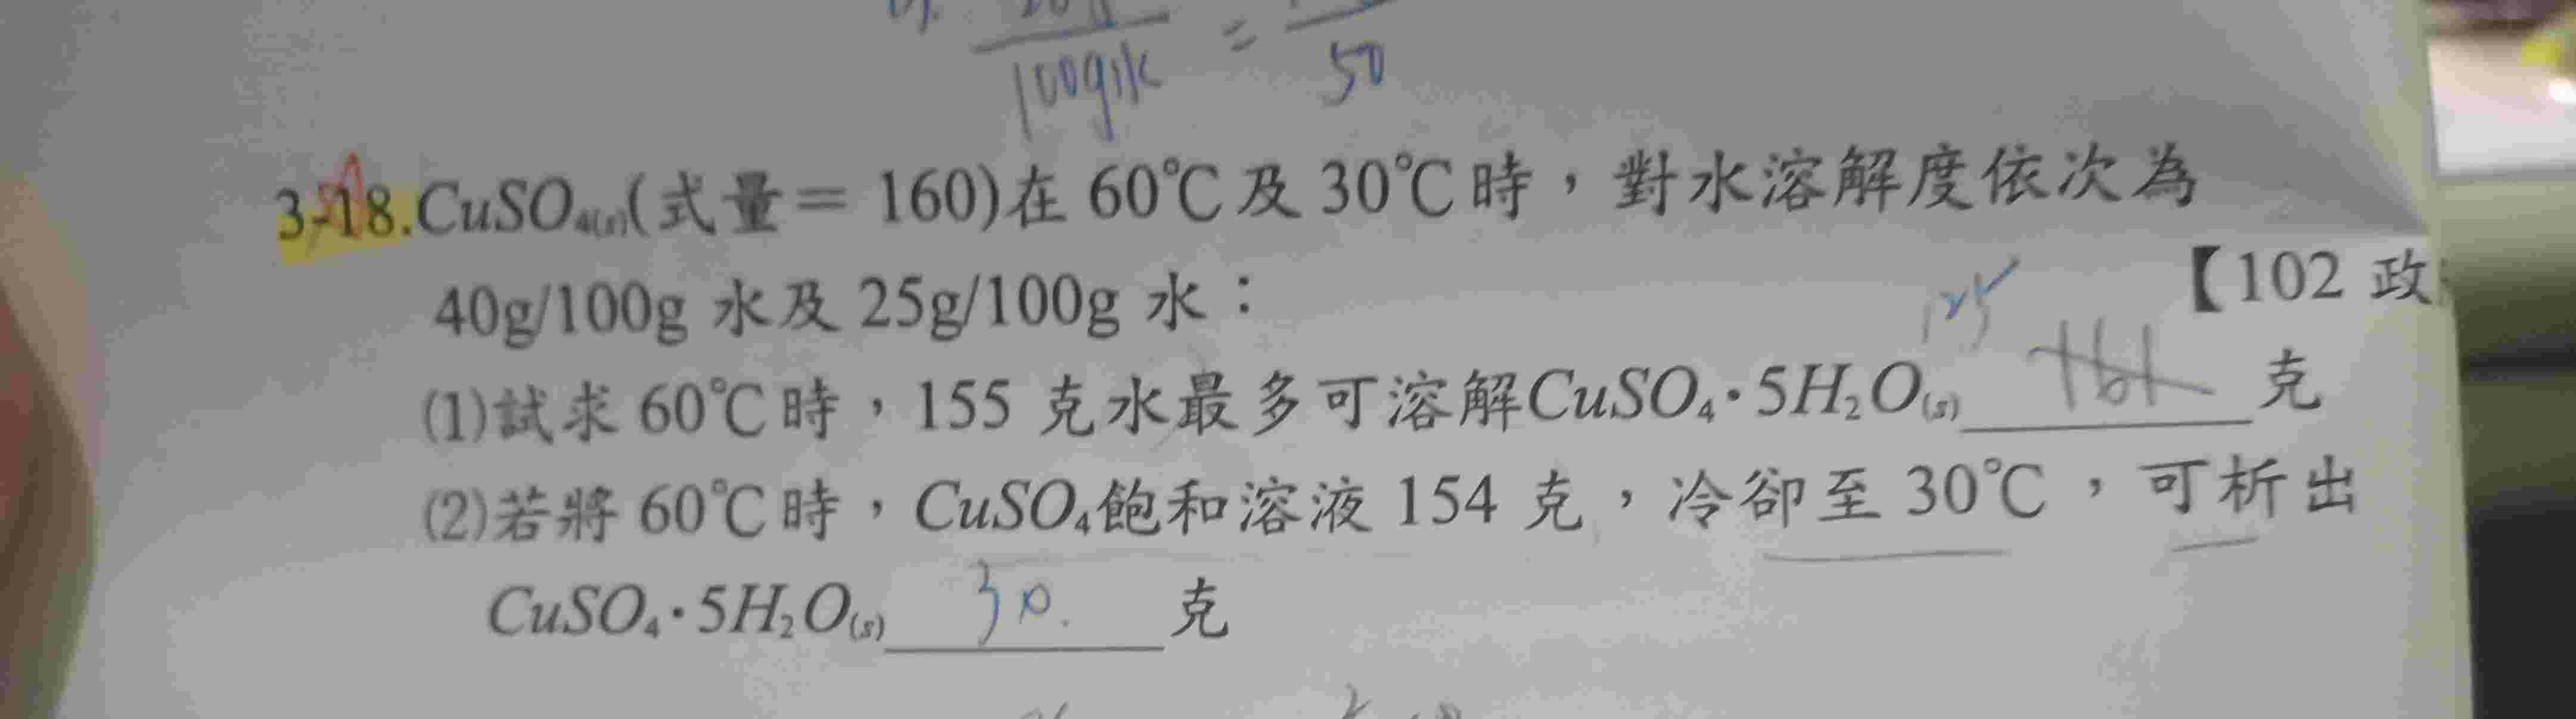 100g水 = 50
3-18.CuSO₄(s)(式量= 160)在 60℃及 30℃時,對水溶解度依次為
40g/100g 水及 25g/100g 水:
【102 政
125
(1)試求 60℃時,155 克水最多可溶解CuSO₄·5H₂O(s) 161 克
(2)若將 60℃時,CuSO₄飽和溶液 154 克,冷卻至 30℃,可析出
CuSO₄·5H₂O(s) 30. 克